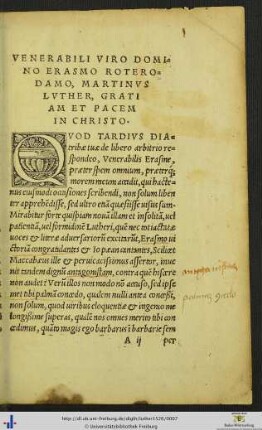 VENERABILI VIRO DOMI-
NO ERASMO ROTERO-
DAMO, MARTINVS
LVTHER, GRATI
AM ET PACEM
IN CHRISTO.
QVOD TARDIVS DIA-
tribæ tuæ de libero arbitrio re-
spondeo, Venerabilis Erasme,
præter spem omnium, præterq;
morem meum accidit, qui hacte-
nus eiusmodi occasiones scribendi, non solum liben-
ter apprehēdisse, sed ultro etiā quæsiisse uisus sum.
Mirabitur forte quispiam nouā illam et insolitā, uel
patientiā, uel formidinē Lutheri, quē nec tot iactatæ
uoces & literæ aduersariorū excitarūt, Erasmo ui
ctoriā congratulantes & Io pæan canentes, Scilicet
Maccabæus ille & peruicacissimus assertor, inue
nit tandem dignū antagonistam, contra quē hiscere
non audet? Verū illos non modo nō accuso, sed ipse
tibi palmā concedo, qualem nulli antea concessi,
non solum, quod uiribus eloquentiæ & ingenio me
longissime superas, quale nos omnes merito tibi con
cedimus, quāto magis ego barbarus in barbarie sem
A ij per
http://dl.ub.uni-freiburg.de/diglit/luther1526/0007
© Universitätsbibliothek Freiburg